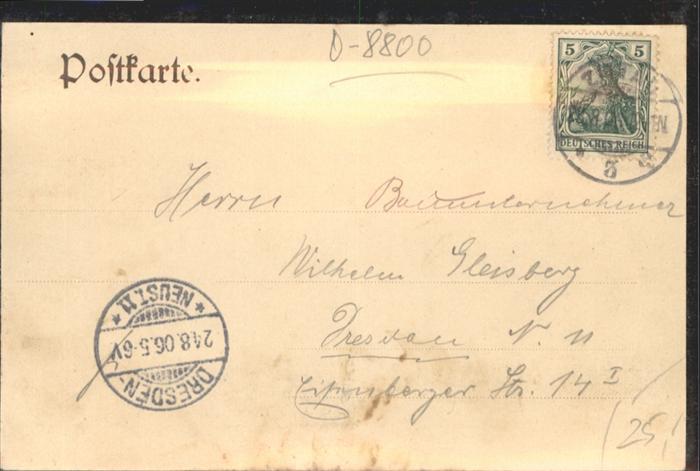 D-8800
Postkarte.
5 5
DEUTSCHES REICH
3
Herrn Bauunternehmer
Wilhelm Gleisberg
Dresden N. 11
Str. 14 I
NEUST. 11
24.8.06.5-6V
DRESDEN-
(25,